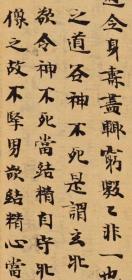 過全身壽盡輒窮數數非一也
之道谷神不死是謂玄牝
欲令神不死當結精自守牝
像之故不堅男欲結精心當